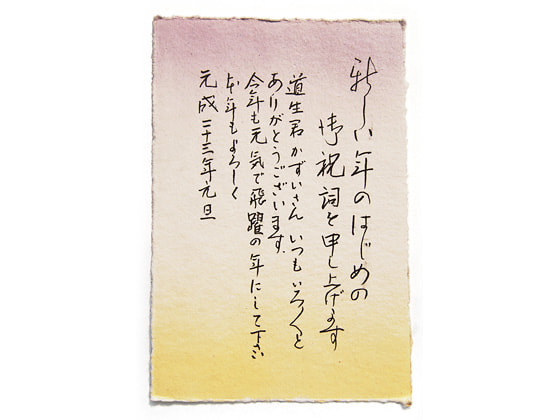 新しい年のはじめの
御祝詞を申し上げます
道生君かずいさんいつもいろ〱と
ありがとうございます.
今年も元気で飛躍の年にして下さい
本年もよろしく
元成二十三年元旦